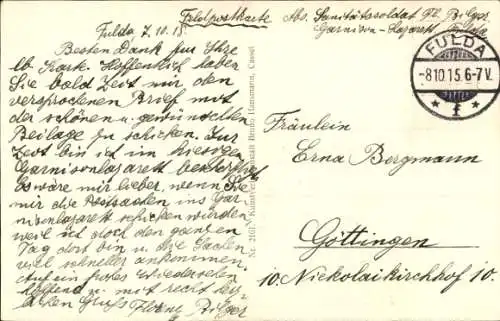 Feldpostkarte Abs. Sanitätssoldat Fl. Bilger
Garnison-Lazarett Fulda
Fulda 7.10.15.
Besten Dank für Ihre
lb Kart. Hoffentlich haben
Sie bald Zeit mir den
versprochenen Brief mit
der schönen u. gewünschten
Beilage zu schicken. Zur
Zeit bin ich im hiesigen
Garnisonlazarett
Es wäre mir lieber, wenn Sie
mir die Postsachen ins Gar-
nisonlazarett schicken würden,
weil ich dort den ganzen
Tag dort bin u. die Sachen
viel schneller ankommen.
Auf ein frohes Wiedersehen
hoffend u. mit recht herz-
lichen Gruß Bilger
FULDA
-8.10.15.6-7V.
* f *
Fräulein
Erna Bergmann
Göttingen
10. Nickolaikirchhof 10.
Bruno Hansmann, Cassel